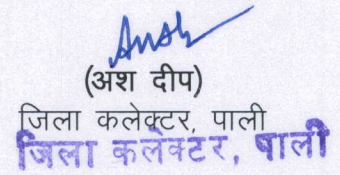 (अंश दीप)
जिला कलेक्टर, पाली
जिला कलेक्टर, पाली